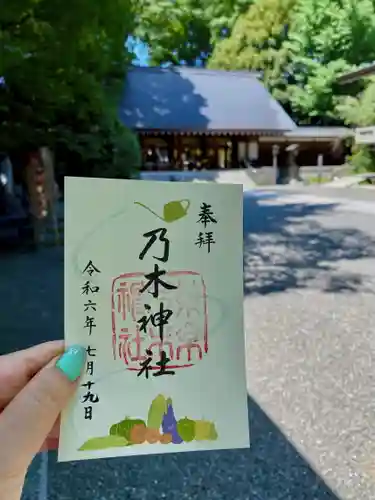 奉拝
乃木神社
令和六年 七月十九日